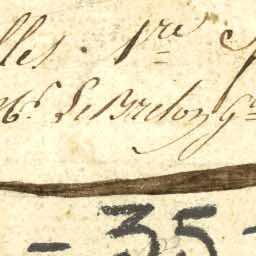 lles. 1re
Mr. Le Breton
- 35 -